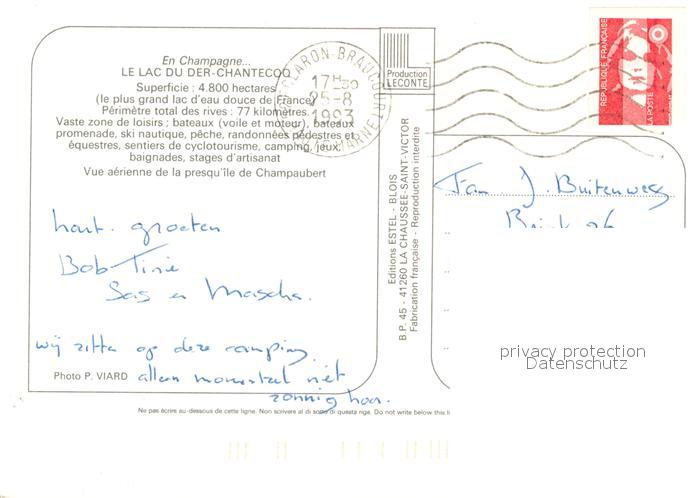 En Champagne...
LE LAC DU DER-CHANTECOQ
Superficie : 4.800 hectares
(le plus grand lac d'eau douce de France)
Périmètre total des rives : 77 kilomètres.
Vaste zone de loisirs : bateaux (voile et moteur), bateaux
promenade, ski nautique, pêche, randonnées pédestres et
équestres, sentiers de cyclotourisme, camping, jeux,
baignades, stages d'artisanat
Vue aérienne de la presqu'île de Champaubert
17H30
25-8
1993
Production
LECONTE
REPUBLIQUE FRANÇAISE
LA POSTE
Editions ESTEL - BLOIS
B.P. 45 - 41260 LA CHAUSSEE-SAINT-VICTOR
Fabrication française - Reproduction interdite
Fam J. Buitenweg
hart. groeten
Bob-Tinie
Sas en Mascha.
wij zitten op deze camping
allen momenteel niet
zonnig hoor.
Photo P. VIARD
Ne pas écrire au-dessous de cette ligne. Non scrivere al di sotto di questa riga. Do not write below this li
privacy protection
Datenschutz